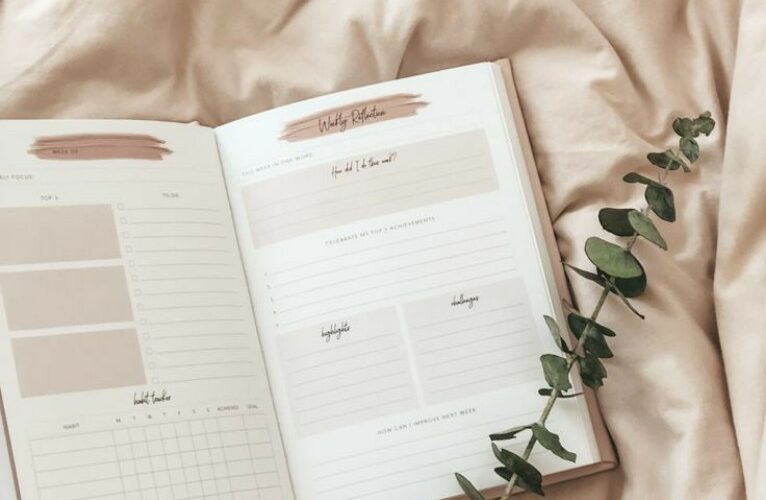 WEEK OF
LY FOCUS:
TOP 3
TO DO
habit tracker
HABIT M T W T F S S ACHIEVED GOAL
Weekly Reflection
THIS WEEK IN ONE WORD:
How did I do this week?
CELEBRATE MY TOP 3 ACHIEVEMENTS
highlights
challenges
HOW CAN I IMPROVE NEXT WEEK